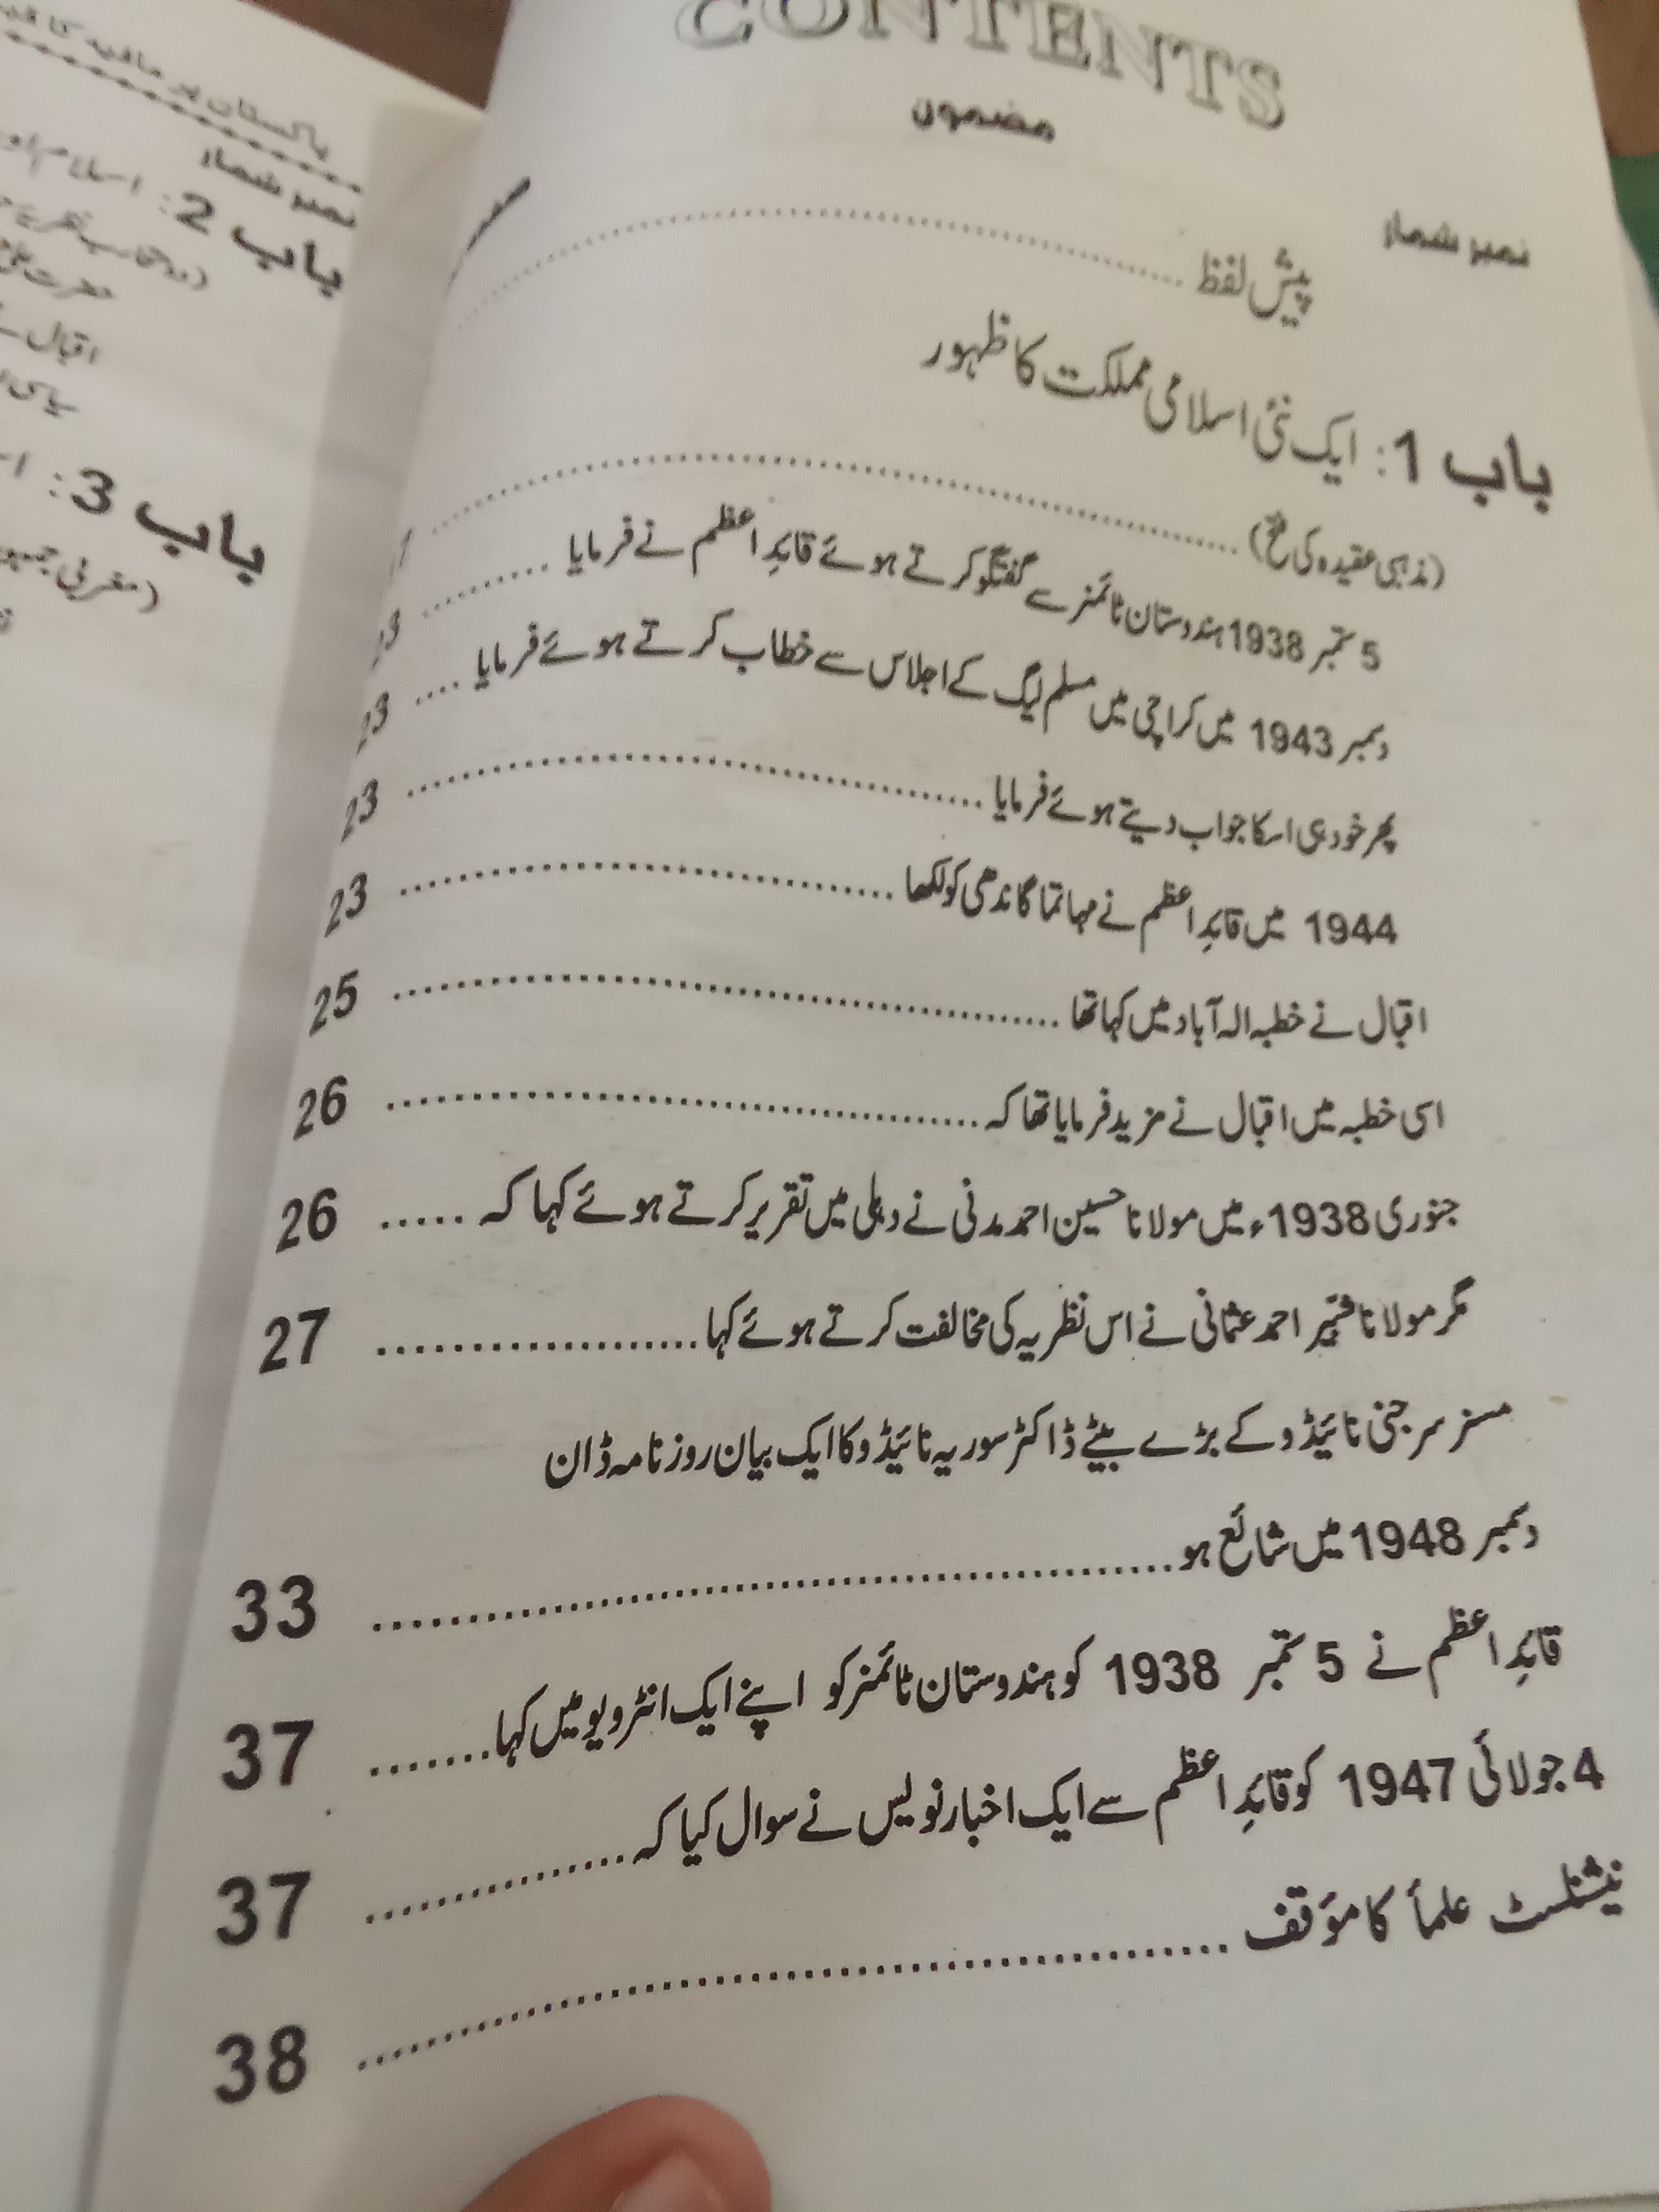 CONTENTS
نمبر شمار مضمون
پیش لفظ
باب 1: ایک نئی اسلامی مملکت کا ظہور
(مذہبی عقیدہ کی فتح)
5 ستمبر 1938 ہندوستان ٹائمنر سے گفتگو کرتے ہوئے قائدِ اعظم نے فرمایا
دسمبر 1943 میں کراچی میں مسلم لیگ کے اجلاس سے خطاب کرتے ہوئے فرمایا .... 23
پھر خود ہی اسکا جواب دیتے ہوئے فرمایا .... 23
1944 میں قائدِ اعظم نے مہاتما گاندھی کو لکھا .... 23
اقبال نے خطبہ الہ آباد میں کہا تھا .... 25
اسی خطبہ میں اقبال نے مزید فرمایا تھا کہ .... 26
جنوری 1938ء میں مولانا حسین احمد مدنی نے دہلی میں تقریر کرتے ہوئے کہا کہ ..... 26
مگر مولانا شبیر احمد عثمانی نے اس نظریہ کی مخالفت کرتے ہوئے کہا .... 27
مسز سرجنی نائیڈو کے بڑے بیٹے ڈاکٹر سوریہ نائیڈو کا ایک بیان روزنامہ ڈان
دسمبر 1948 میں شائع ہو .... 33
قائدِ اعظم نے 5 ستمبر 1938 کو ہندوستان ٹائمنر کو اپنے ایک انٹرویو میں کہا ....... 37
4 جولائی 1947 کو قائدِ اعظم سے ایک اخبار نویس نے سوال کیا کہ .... 37
نیشنلسٹ علمأ کا مؤقف .... 38
نمبر شمار
باب 2: اسلام اور
اقبال
باب 3:
(مغربی